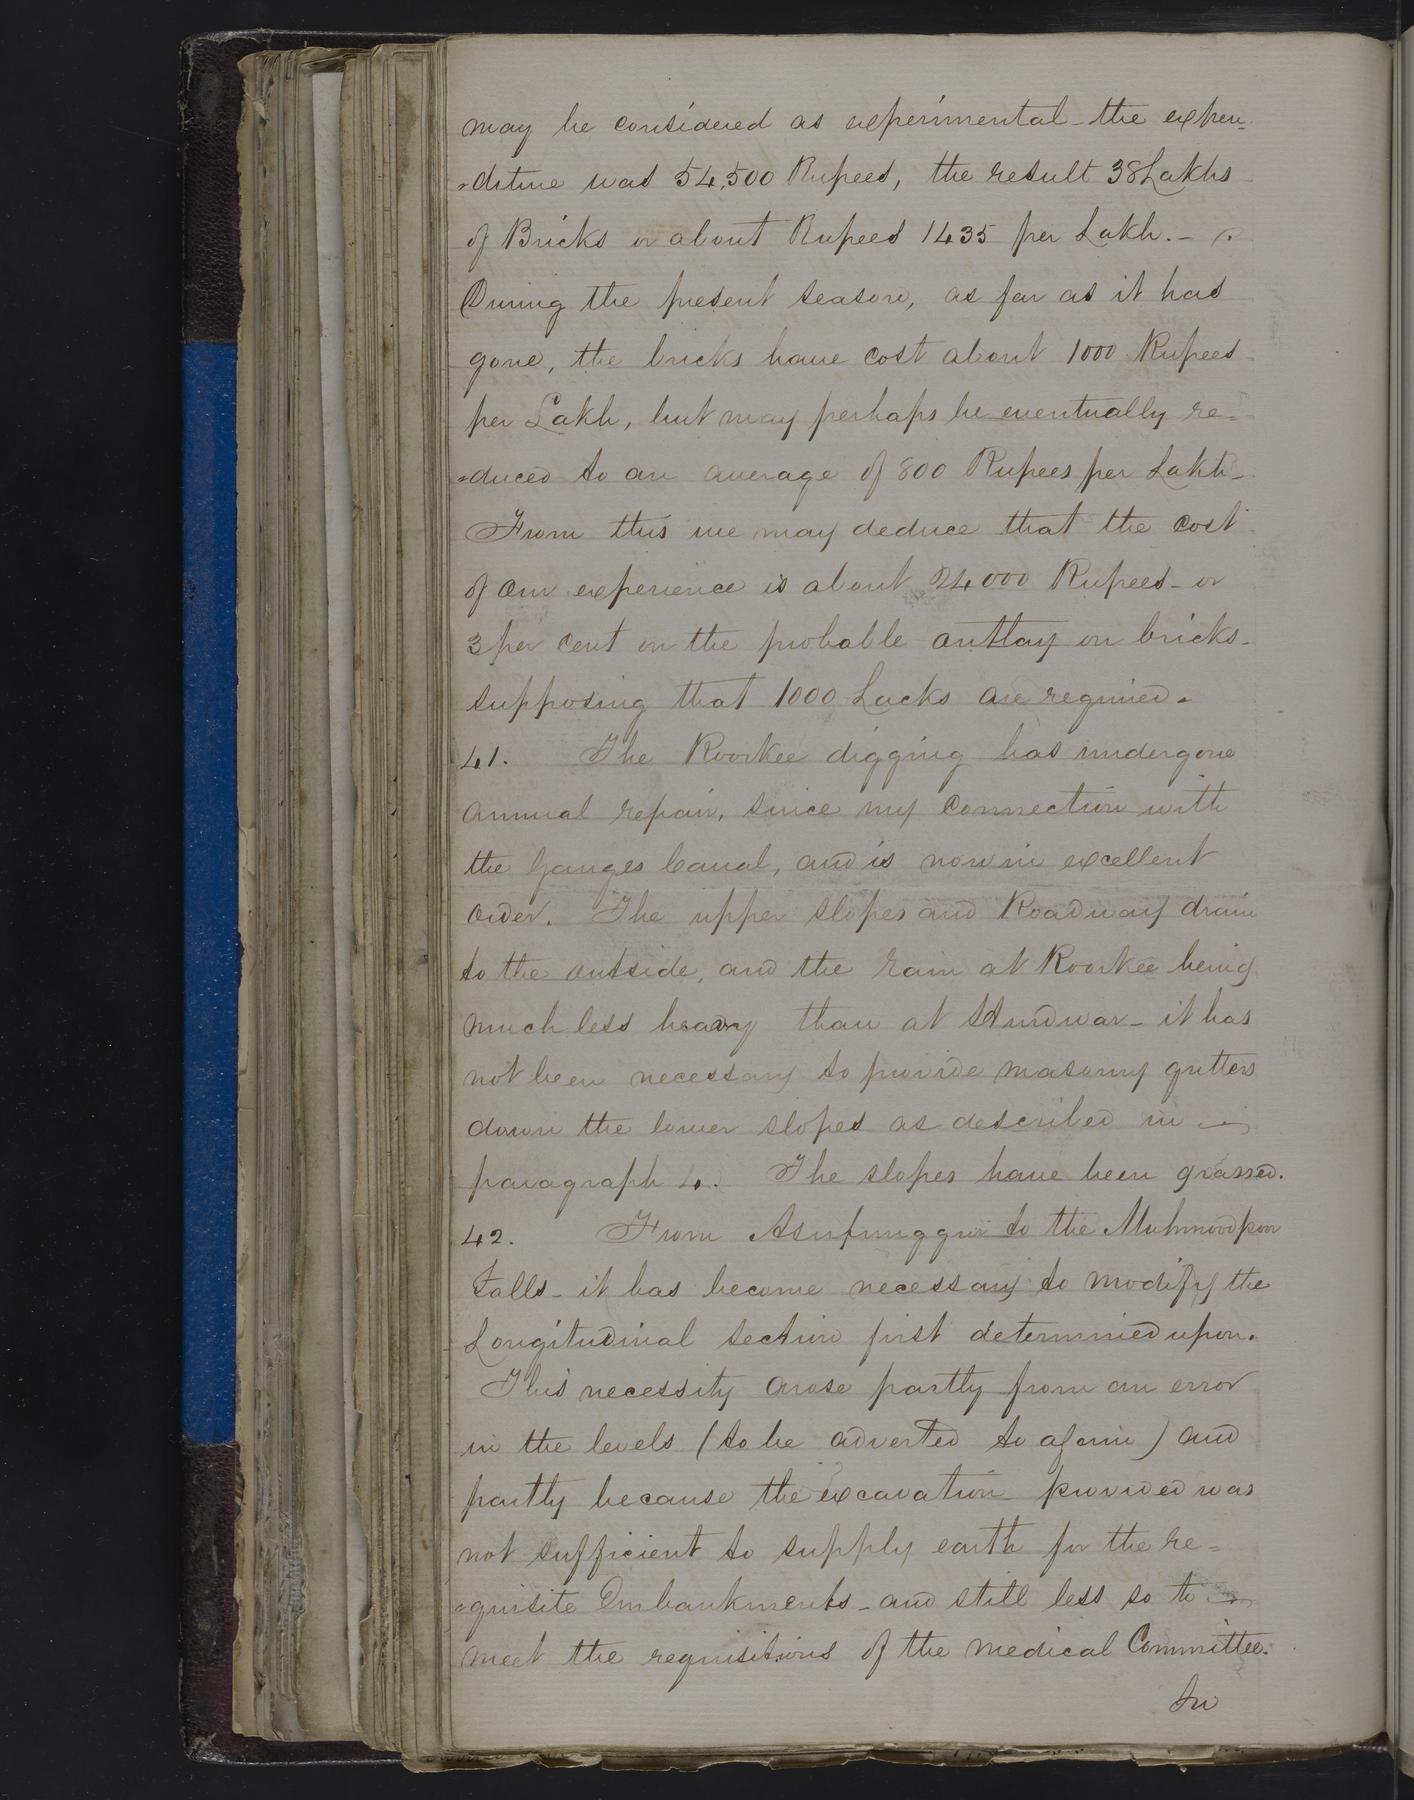 may be considered as experimental - the expen=
=diture was 54,500 Rupees, the result 38 Lakhs
of Bricks or about Rupees 1435 per Lakh. -
During the present season, as far as it has
gone, the bricks have cost about 1000 Rupees
per Lakh, but may perhaps be eventually re=
=duced to an average of 800 Rupees per Lakh -
From this we may deduce that the cost
of our experience is about 24000 Rupees - or
3 per cent on the probable outlay on bricks -
supposing that 1000 Lacks are required.
41. The Roorkee digging has undergone
annual repair, since my connection with
the Ganges Canal, and is now in excellent
order. The upper slopes and Roadway drain
to the outside, and the rain at Roorkee being
much less heavy than at Hurdwar - it has
not been necessary to provide masonry gutters
down the lower slopes as described in
paragraph 4. The slopes have been grassed.
42. From Asufnuggur to the Muhmoodpoor
Falls - it has become necessary to modify the
Longitudinal section first determined upon.
This necessity arose partly from an error
in the levels (to be adverted to again) and
partly because the excavation provided was
not sufficient to supply earth for the re=
=quisite Embankments - and still less so to
meet the requisitions of the medical Committee.
In